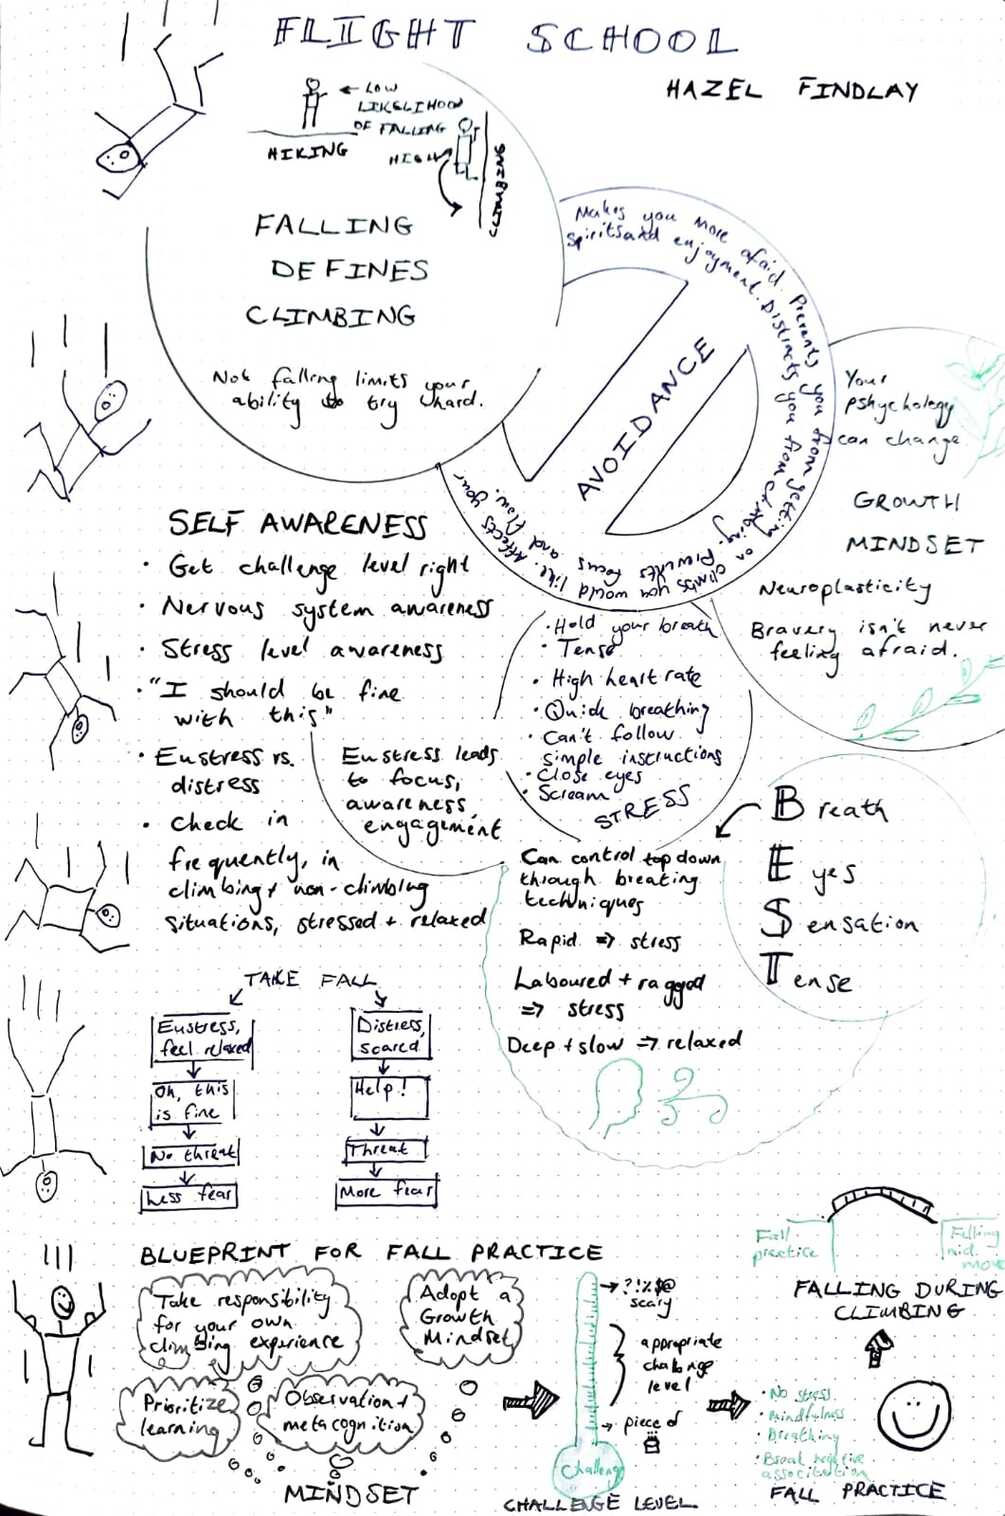 FLIGHT SCHOOL
HAZEL FINDLAY
LOW
LIKELIHOOD
OF FALLING
HIKING
HIGH
CLIMBING
FALLING
DEFINES
CLIMBING
Not falling limits your
ability to try hard.
AVOIDANCE
Makes you more afraid. Prevents you from getting on climbs you would like. Affects your
spirits and enjoyment. Distracts you from climbing. Prevents focus and flow.
Your
pshychology
can change
GROWTH
MINDSET
Neuroplasticity
Bravery isn't never
feeling afraid.
SELF AWARENESS
• Get challenge level right
• Nervous system awareness
• Stress level awareness
• "I should be fine
with this"
• Eustress vs.
distress
• Check in
frequently, in
climbing + non-climbing
situations, stressed + relaxed
Eustress leads
to focus,
awareness,
engagement
• Hold your breath
• Tense
• High heart rate
• Quick breathing
• Can't follow
simple instructions
• Close eyes
• Scream
STRESS
Breath
Eyes
Sensation
Tense
Can control top down
through breating
techniques
Rapid => stress
Laboured + ragged
=> stress
Deep + slow => relaxed
TAKE FALL
Eustress,
feel relaxed
Oh, this
is fine
No threat
Less fear
Distress,
scared
Help!
Threat
More fear
BLUEPRINT FOR FALL PRACTICE
Take responsibility
for your own
climbing experience
Adopt a
Growth
Mindset
Prioritize
learning
Observation +
metacognition
MINDSET
?!%$@
scary
appropriate
challenge
level
piece of
Challenge
CHALLENGE LEVEL
Fall
practice
Falling
mid
move
FALLING DURING
CLIMBING
• No stress
• Mindfulness
• Breathing
• Break negative
association
FALL PRACTICE